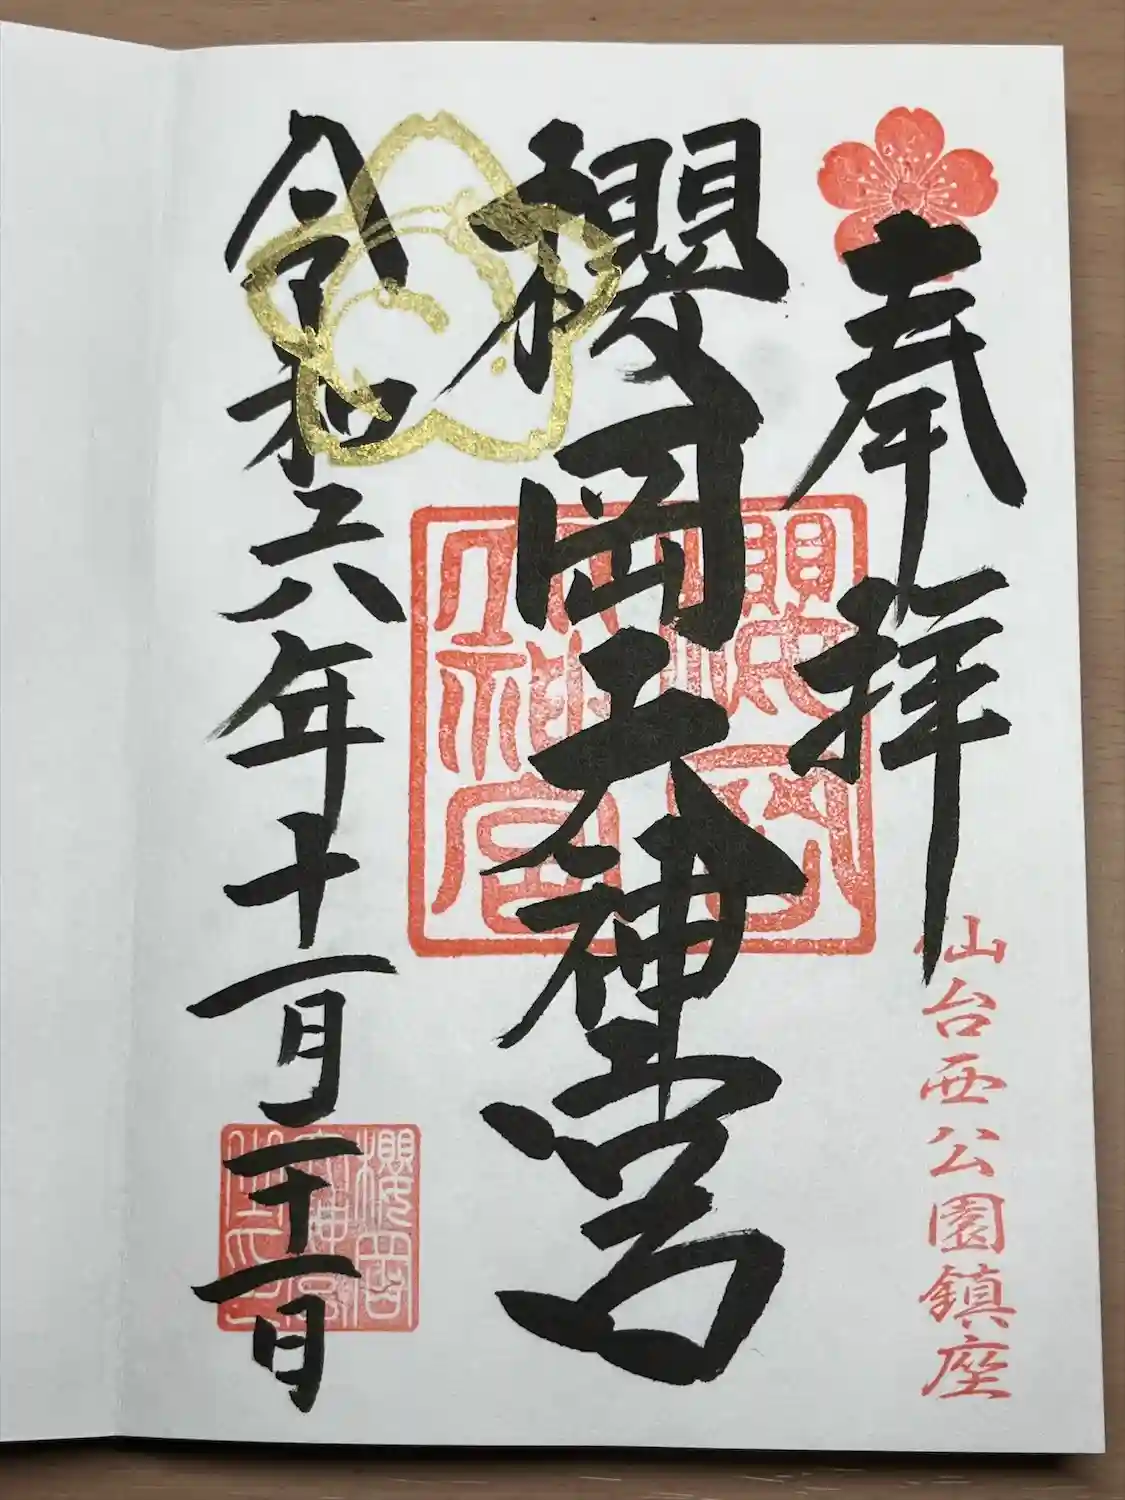 奉拝
仙台西公園鎮座
櫻岡大神宮
櫻岡大神宮
令和六年十一月二十一日
櫻岡